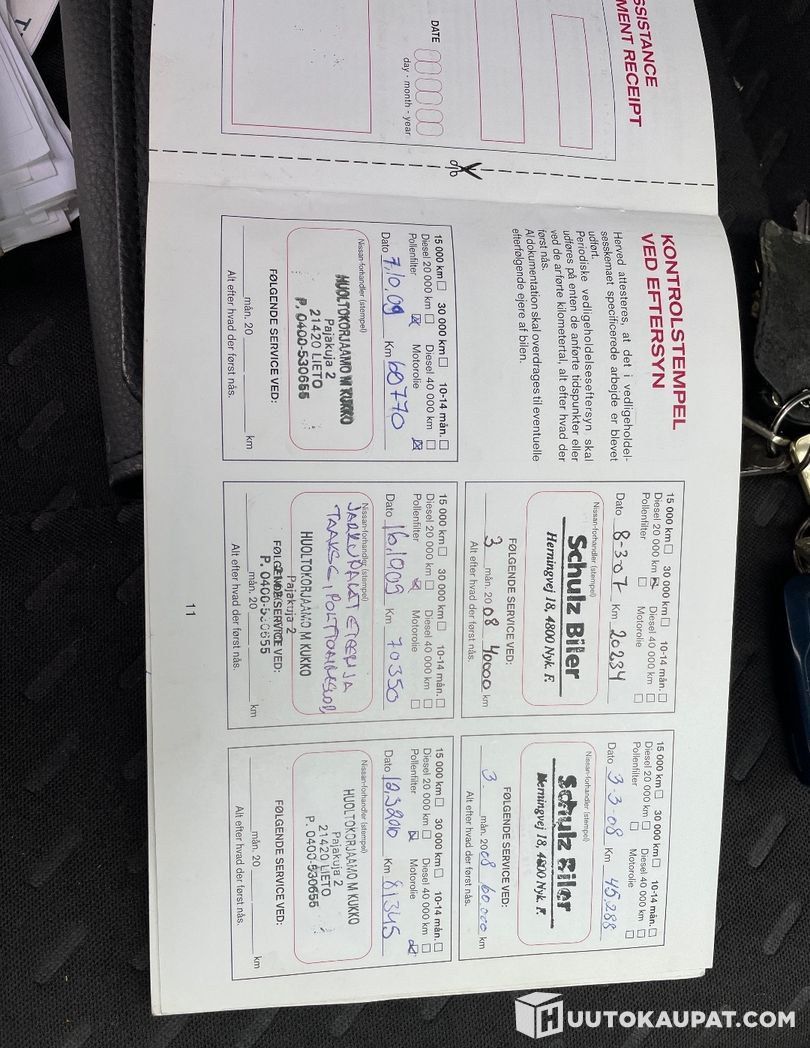 SSISTANCE
MENT RECEIPT
DATE
day - month - year
KONTROLSTEMPEL
VED EFTERSYN
Herved attesteres, at det i vedligeholdel-
sesskemaet specificerede arbejde er blevet
udført.
Periodiske vedligeholdelseseftersyn skal
udføres på enten de anførte tidspunkter eller
ved de anførte kilometertal, alt efter hvad der
først nås.
Al dokumentation skal overdrages til eventuelle
efterfølgende ejere af bilen.
15 000 km 30 000 km 10-14 mån.
Diesel 20 000 km Diesel 40 000 km
Pollenfilter Motorolie
Dato 8-3-07 Km 20234
Nissan-forhandler (stempel)
Schulz Biler
Herningvej 18, 4800 Nyk. F.
FØLGENDE SERVICE VED:
3 mån. 2008 40000 km
Alt efter hvad der først nås.
15 000 km 30 000 km 10-14 mån.
Diesel 20 000 km Diesel 40 000 km
Pollenfilter Motorolie
Dato 3-3-08 Km 45288
Nissan-forhandler (stempel)
Schulz Biler
Herningvej 18, 4800 Nyk. F.
FØLGENDE SERVICE VED:
3. mån. 2008 60000 km
Alt efter hvad der først nås.
15 000 km 30 000 km 10-14 mån.
Diesel 20 000 km Diesel 40 000 km
Pollenfilter Motorolie
Dato 7,10,09 Km 60770
Nissan-forhandler (stempel)
HUOLTOKORJAAMO M KUKKO
Pajakuja 2
21420 LIETO
P. 0400-530655
FØLGENDE SERVICE VED:
mån. 20 km
Alt efter hvad der først nås.
15 000 km 30 000 km 10-14 mån.
Diesel 20 000 km Diesel 40 000 km
Pollenfilter Motorolie
Dato 16,1009 Km 70350
Nissan-forhandler (stempel)
JARRUPALAT ETEEN JA
TAAKSE,
HUOLTOKORJAAMO M KUKKO
Pajakuja 2
FØLGENDE SERVICE VED:
P. 0400-530655
mån. 20 km
Alt efter hvad der først nås.
15 000 km 30 000 km 10-14 mån.
Diesel 20 000 km Diesel 40 000 km
Pollenfilter Motorolie
Dato 12,3,2010 Km 81345
Nissan-forhandler (stempel)
HUOLTOKORJAAMO M KUKKO
Pajakuja 2
21420 LIETO
P. 0400-530655
FØLGENDE SERVICE VED:
mån. 20 km
Alt efter hvad der først nås.
11
HUUTOKAUPAT.COM